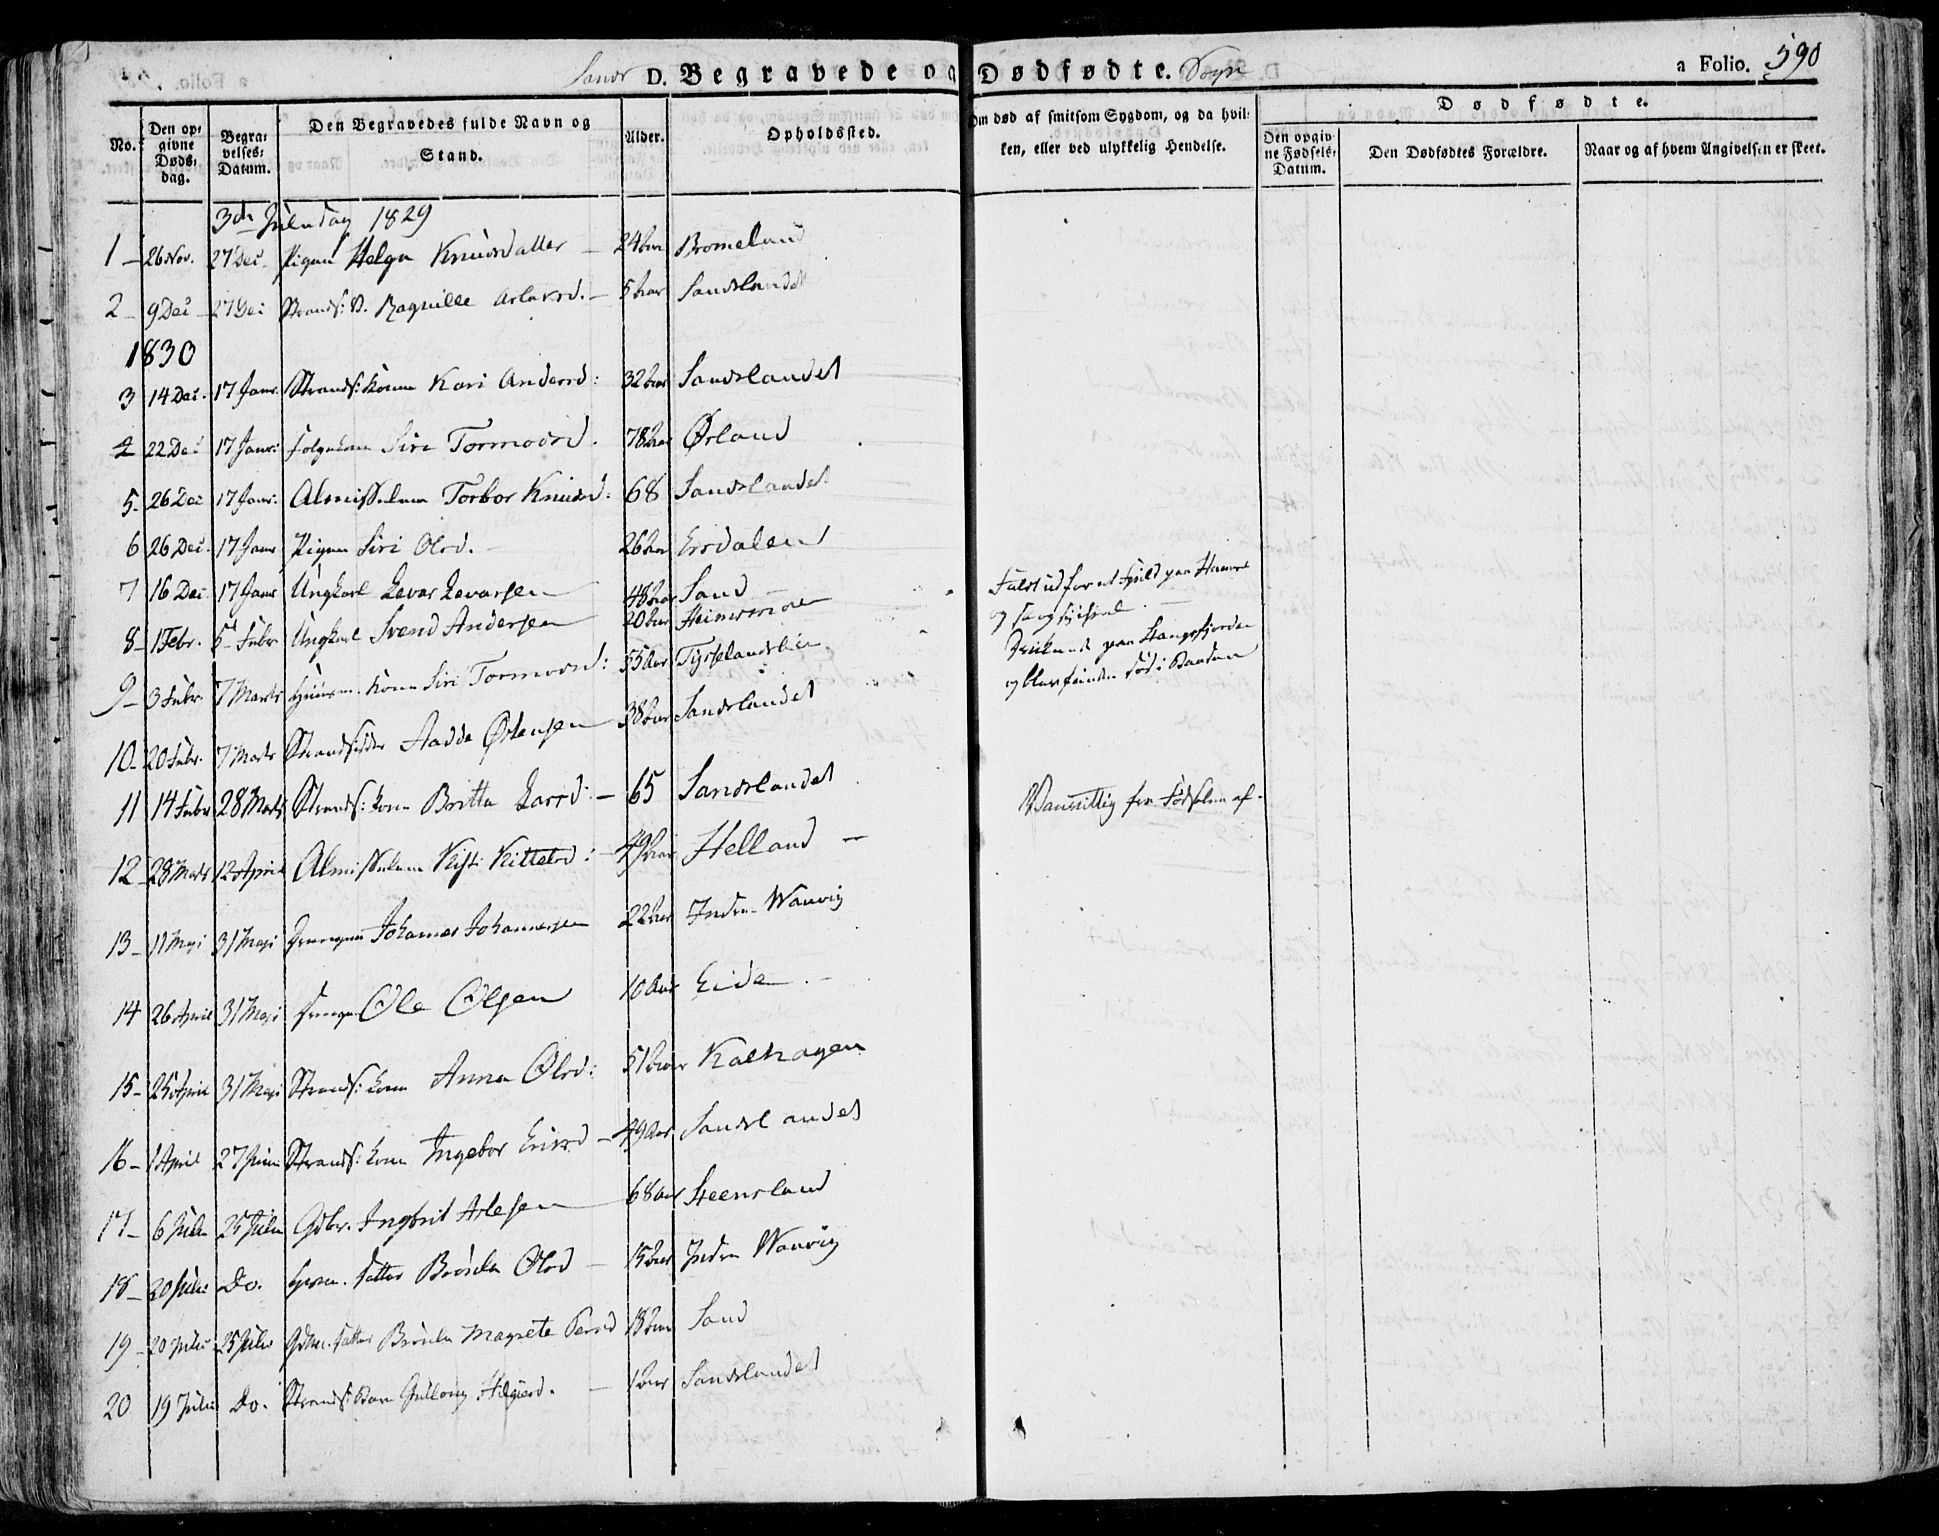 Sands D. Begravede og Dødfødte. Sogn a Folio. 590
No. Den opgivne Dødsdag. Begravelses Datum. Den Begravedes fulde Navn og Stand. Alder. Opholdssted. Om død af smitsom Sygdom, og da hvilken, eller ved ulykkelig Hendelse.
Dødfødte.
Den opgivne Fødsels-Datum. Den Dødfødtes Forældre. Naar og af hvem Angivelsen er skeet.
3die Juledag 1829
1 26 Nov. 27 Dec. Pigen Helga Knudsdatter 24 Aar Bromeland
2 9 Dec 27 Dec Strands: D. Asla 5 Aar Sandslandet
1830
3 14 Dec. 17 Janr. Strands: Kone Kari Andersd: 32 Aar Sandslandet
4 22 Dec 17 Janr: Siri Tormodsd. 78 Aar Ørland
5 26 Dec 17 Janr: Almisselem Torbor Knudsd: 68 Sandslandet
6 26 Dec. 17 Janr Pigen Siri Olsd. 26 Aar Ersdalen
7 16 Dec 17 Janr Ungkarl Levar Levarsen 48 Aar Sand
8 1 Febr. 5 Febr Ungkarl Svend Andersen 20 Aar
9 3 Febr 7 Marts Huusm. Kone Siri Tormodsd: 55 Aar Tysselandslien
10 20 Febr. 7 Marts Strandsidder Aadde Østensen 38 Aar Sandslandet
Faldt ud for et Field paa
og
Druknede paa
og blev funden død i Baaden
11 14 Febr 28 Marts Strands: Kone Britta Larsd: 65 Sandslandet
Vanvittig fra Fødselen af.
12 28 Marts 12 April Almisselem Kisti Kittelsd: 49 Aar Helland
13 11 Maji 31 Maji Drengen Johannes Johannessen 22 Aar Indre Waavig
14 26 April 31 Maji Drengen Ole Olsen 10 Aar Eide
15 25 April 31 Maji Strands: Kone Anna Olsd: 51 Aar Kalhagen
16 1 April 27 Juni Strands: Kone Ingebor Ericsd 49 Aar Sandslandet
17 6 Juli 25 Juli Gdbr. Ingbrit Atlesen 68 Aar Steensland
18 20 Juli Do. Huusm. Datter Brönla Olsd 15 Aar Indre Waavig
19 20 Juli 25 Juli Gdm. Datter Brönla Magrete Persd 18 Aar Sand
20 19 Juli Do. Strands: Barn 1 Aar Sandslandet